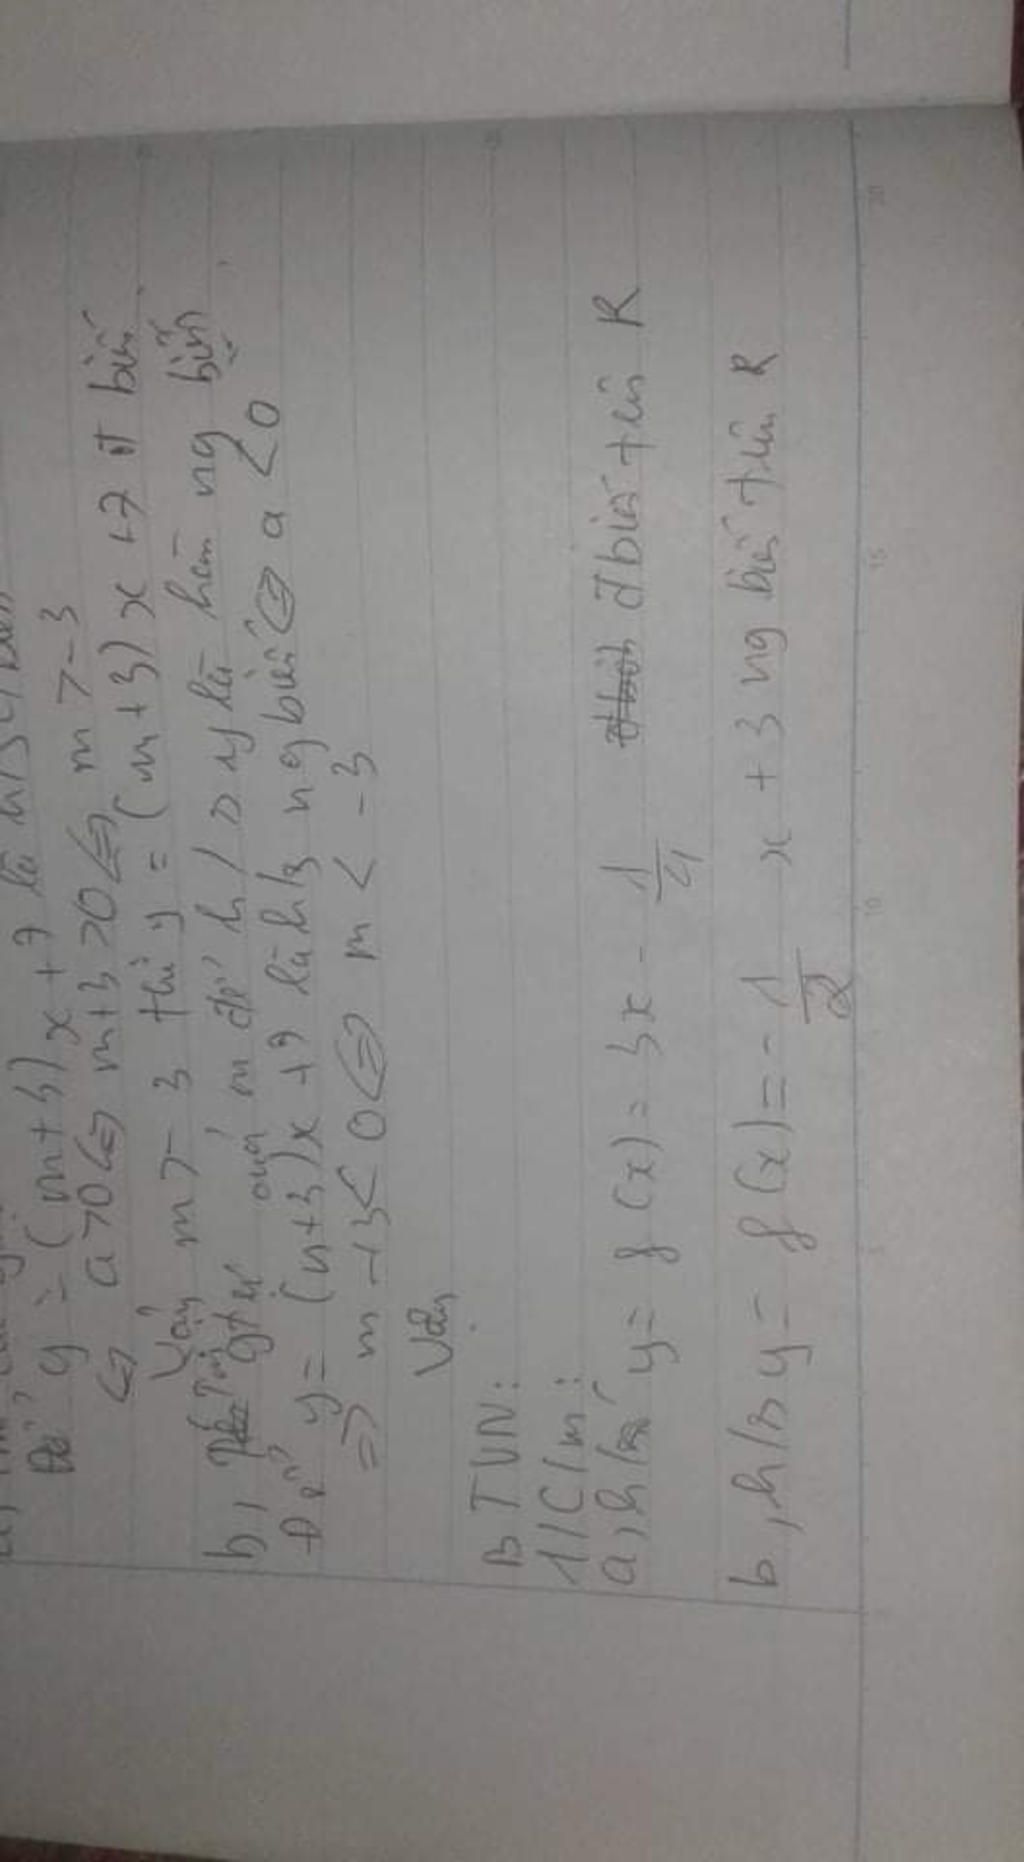 Để y = (m+3)x+7 là h/s
⇔ a>0 ⇔ m+3>0 ⇔ m>-3
Vậy m>-3 thì y = (m+3)x+7 đ biến
b, Tìm gtrị của m để h/s y là hàm ng biến
Để y = (m+3)x+9 là h/s ng biến ⇔ a<0
=> m+3<0 ⇔ m<-3
Vậy
BTVN:
1/ C/m:
a, h/số y = f(x) = 3x - 1/4 đ biến trên R
b, h/s y = f(x) = -1/2 x + 3 ng biến trên R